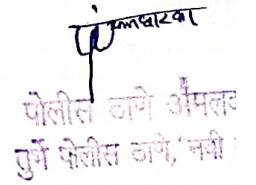 पोलीस ठाणे अंमलद
तुर्भे पोलीस ठाणे, नवी